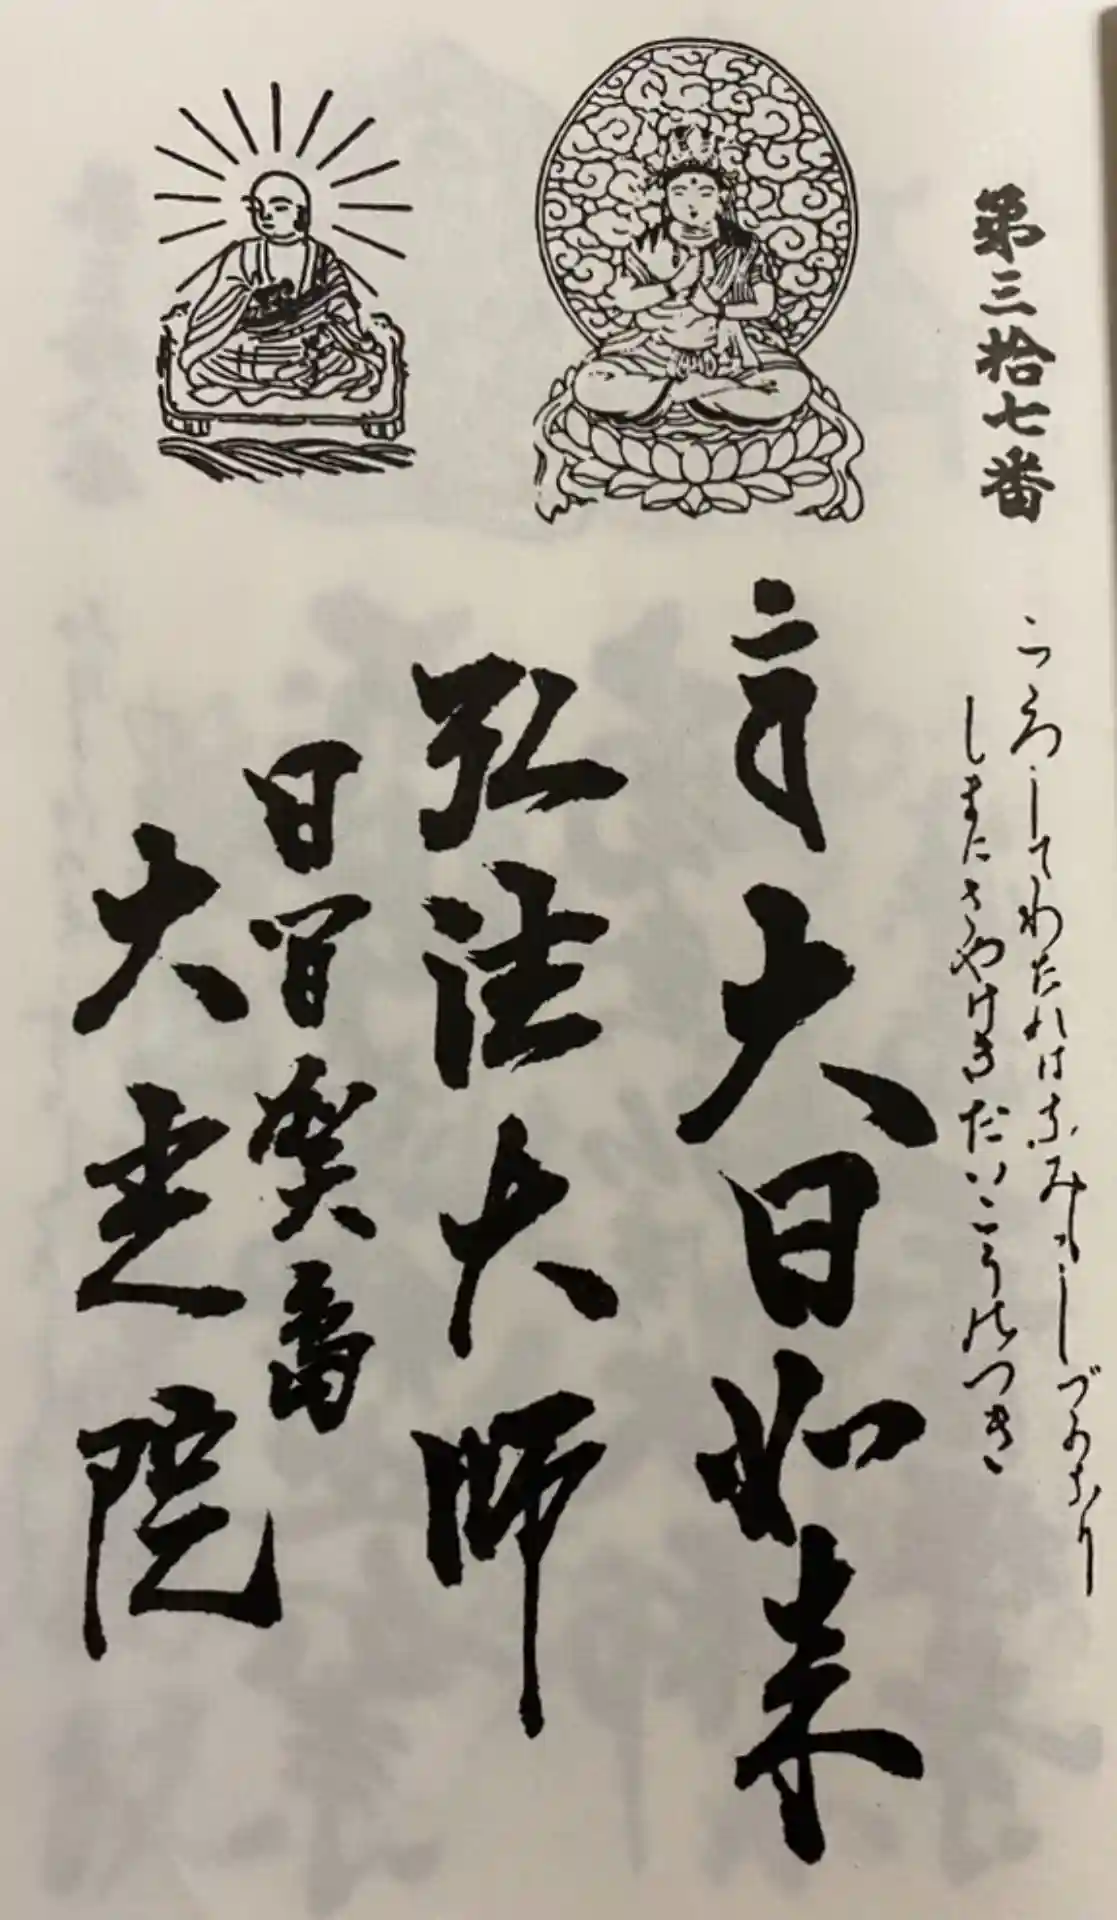 第三拾七番
こゝろしてわたれはなみもしづかなり
しまにさやけきたいこうのつき
大日如来
弘法大師
日間賀島
大光院